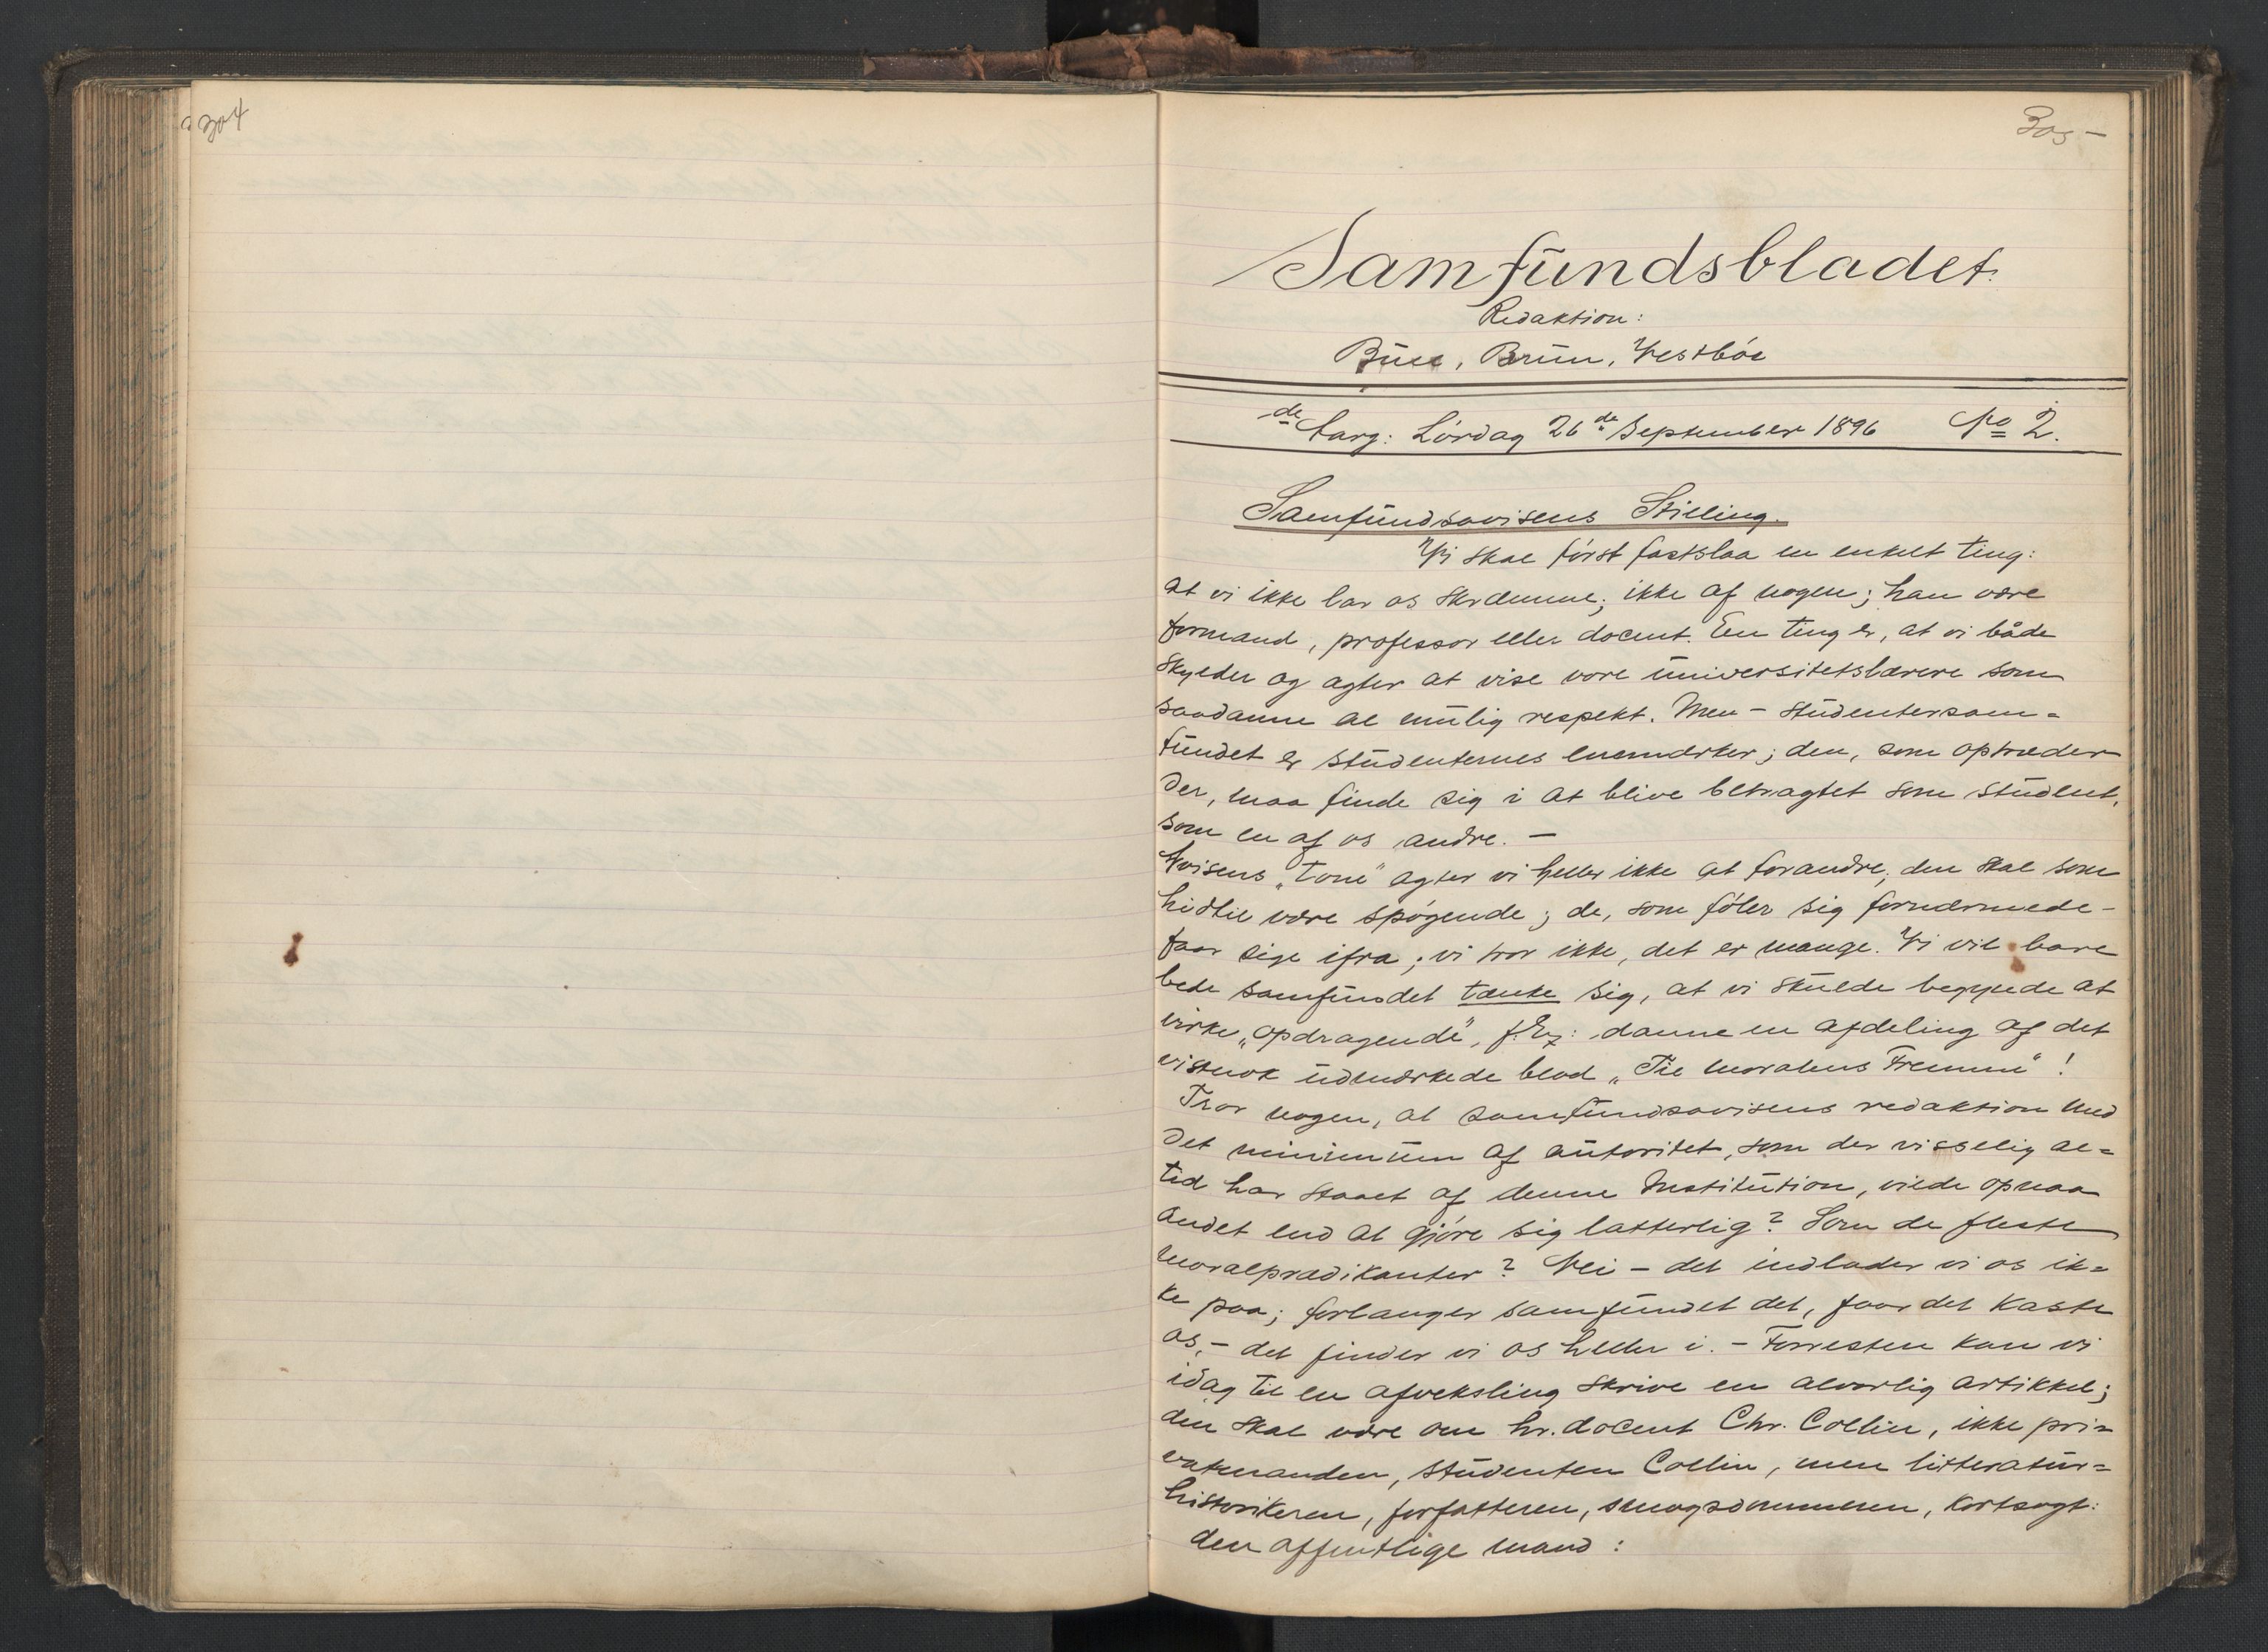 304
305 –
Samfundsbladet.
Redaktion:
Buee, Brun, Vestbóe
de Aarg: Lórdag 26de September 1896 No 2.
Samfundsavisens Stilling.
Vi skal fórst fastslaa en enkelt ting:
at vi ikke lar os skræmme, ikke af nogen; han være
formand, professor eller docent. En ting er, at vi både
skylder og agter at vise vore universitetslærere som
saadanne al mulig respekt. Men – Studentersam=
fundet er studenternes enemærker; den, som optræder
der, maa finde sig i at blive betragtet som student,
som en af os andre. –
Avisens „tone" agter vi heller ikke at forandre; den skal som
hidtil være spógende; de, som fóler sig fornærmede –
faar sige ifra; vi tror ikke, det er mange. Vi vil bare
bede samfundet tænke sig, at vi skulde begynde at
virke „opdragende", f. Ex: danne en afdeling af det
vistnok udmærkede blad „Til Moralens Fremme"!
Tror nogen, at samfundsavisens redaktion med
det minimum af autoritet, som der visselig al=
tid har staaet af denne Institution, vilde opnaa
andet end at gjóre sig latterlig? Som de fleste
moralprædikanter? Nei – det indlader vi os ik=
ke paa; forlanger samfundet det, faar det kaste
os, – det finder vi os heller i. – Forresten kan vi
idag til en afveksling skrive en alvorlig artikkel;
den skal være om hr. docent Chr. Collin, ikke pri=
vatmanden, studenten Collin, men litteratur=
historikeren, forfatteren, smagsdommeren, kortsagt:
den offentlige mand: